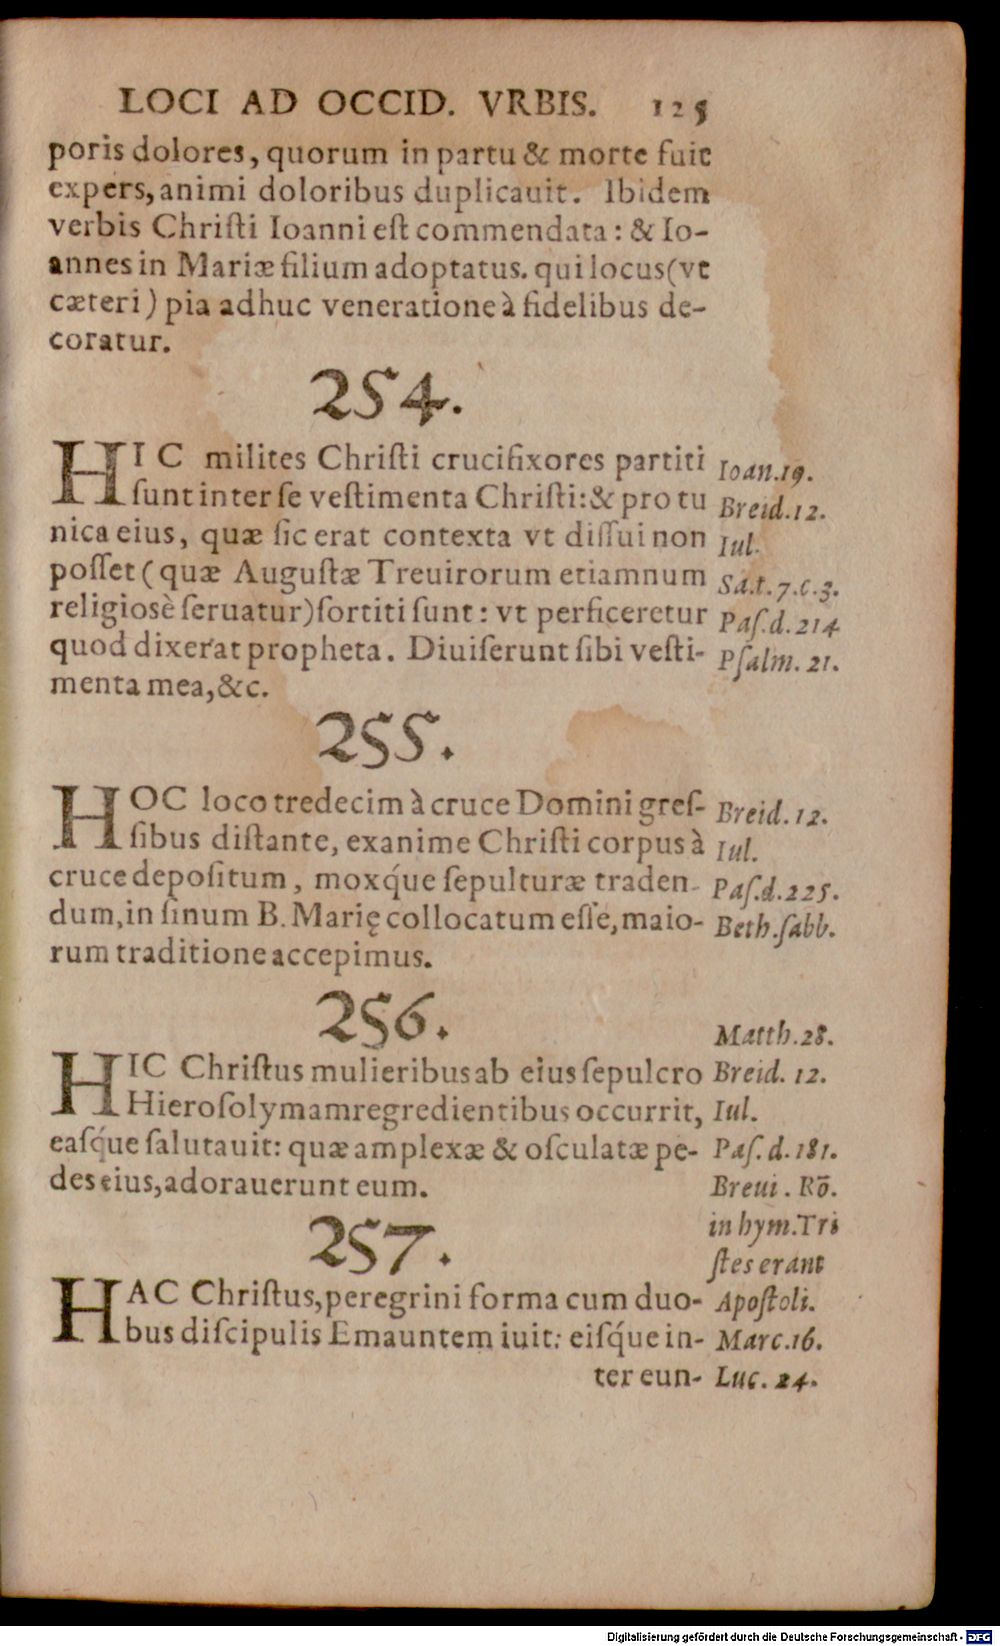 LOCI AD OCCID. VRBIS. 125
poris dolores, quorum in partu & morte fuit
expers, animi doloribus duplicauit. Ibidem
verbis Chriſti Ioanni eſt commendata: & Io-
annes in Mariæ filium adoptatus. qui locus (vt
cæteri) pia adhuc veneratione à fidelibus de-
coratur.
254.
HIC milites Chriſti crucifixores partiti
ſunt inter ſe veſtimenta Chriſti: & pro tu
nica eius, quæ ſic erat contexta vt diſſui non
poſſet (quæ Auguſtæ Treuirorum etiamnum
religiosè ſeruatur) ſortiti ſunt: vt perficeretur
quod dixerat propheta. Diuiſerunt ſibi veſti-
menta mea, &c.
Ioan. 19.
Breid. 12.
Iul.
Sa.t. 7. c. 3.
Paſ. d. 214
Pſalm. 21.
255.
HOC loco tredecim à cruce Domini greſ-
ſibus diſtante, exanime Chriſti corpus à
cruce depoſitum, moxq́ue ſepulturæ traden-
dum, in ſinum B. Marię collocatum eſſe, maio-
rum traditione accepimus.
Breid. 12.
Iul.
Paſ. d. 225.
Beth. ſabb.
256.
HIC Chriſtus mulieribus ab eius ſepulcro
Hieroſolymam regredientibus occurrit,
eaſq́ue ſalutauit: quæ amplexæ & oſculatæ pe-
des eius, adorauerunt eum.
Matth. 28.
Breid. 12.
Iul.
Paſ. d. 181.
Breui. Rō.
in hym. Tri
ſtes erant
Apoſtoli.
257.
HAC Chriſtus, peregrini forma cum duo-
bus diſcipulis Emauntem iuit: eiſq́ue in-
ter eun-
Marc. 16.
Luc. 24.
Digitalisierung gefördert durch die Deutsche Forschungsgemeinschaft - DFG